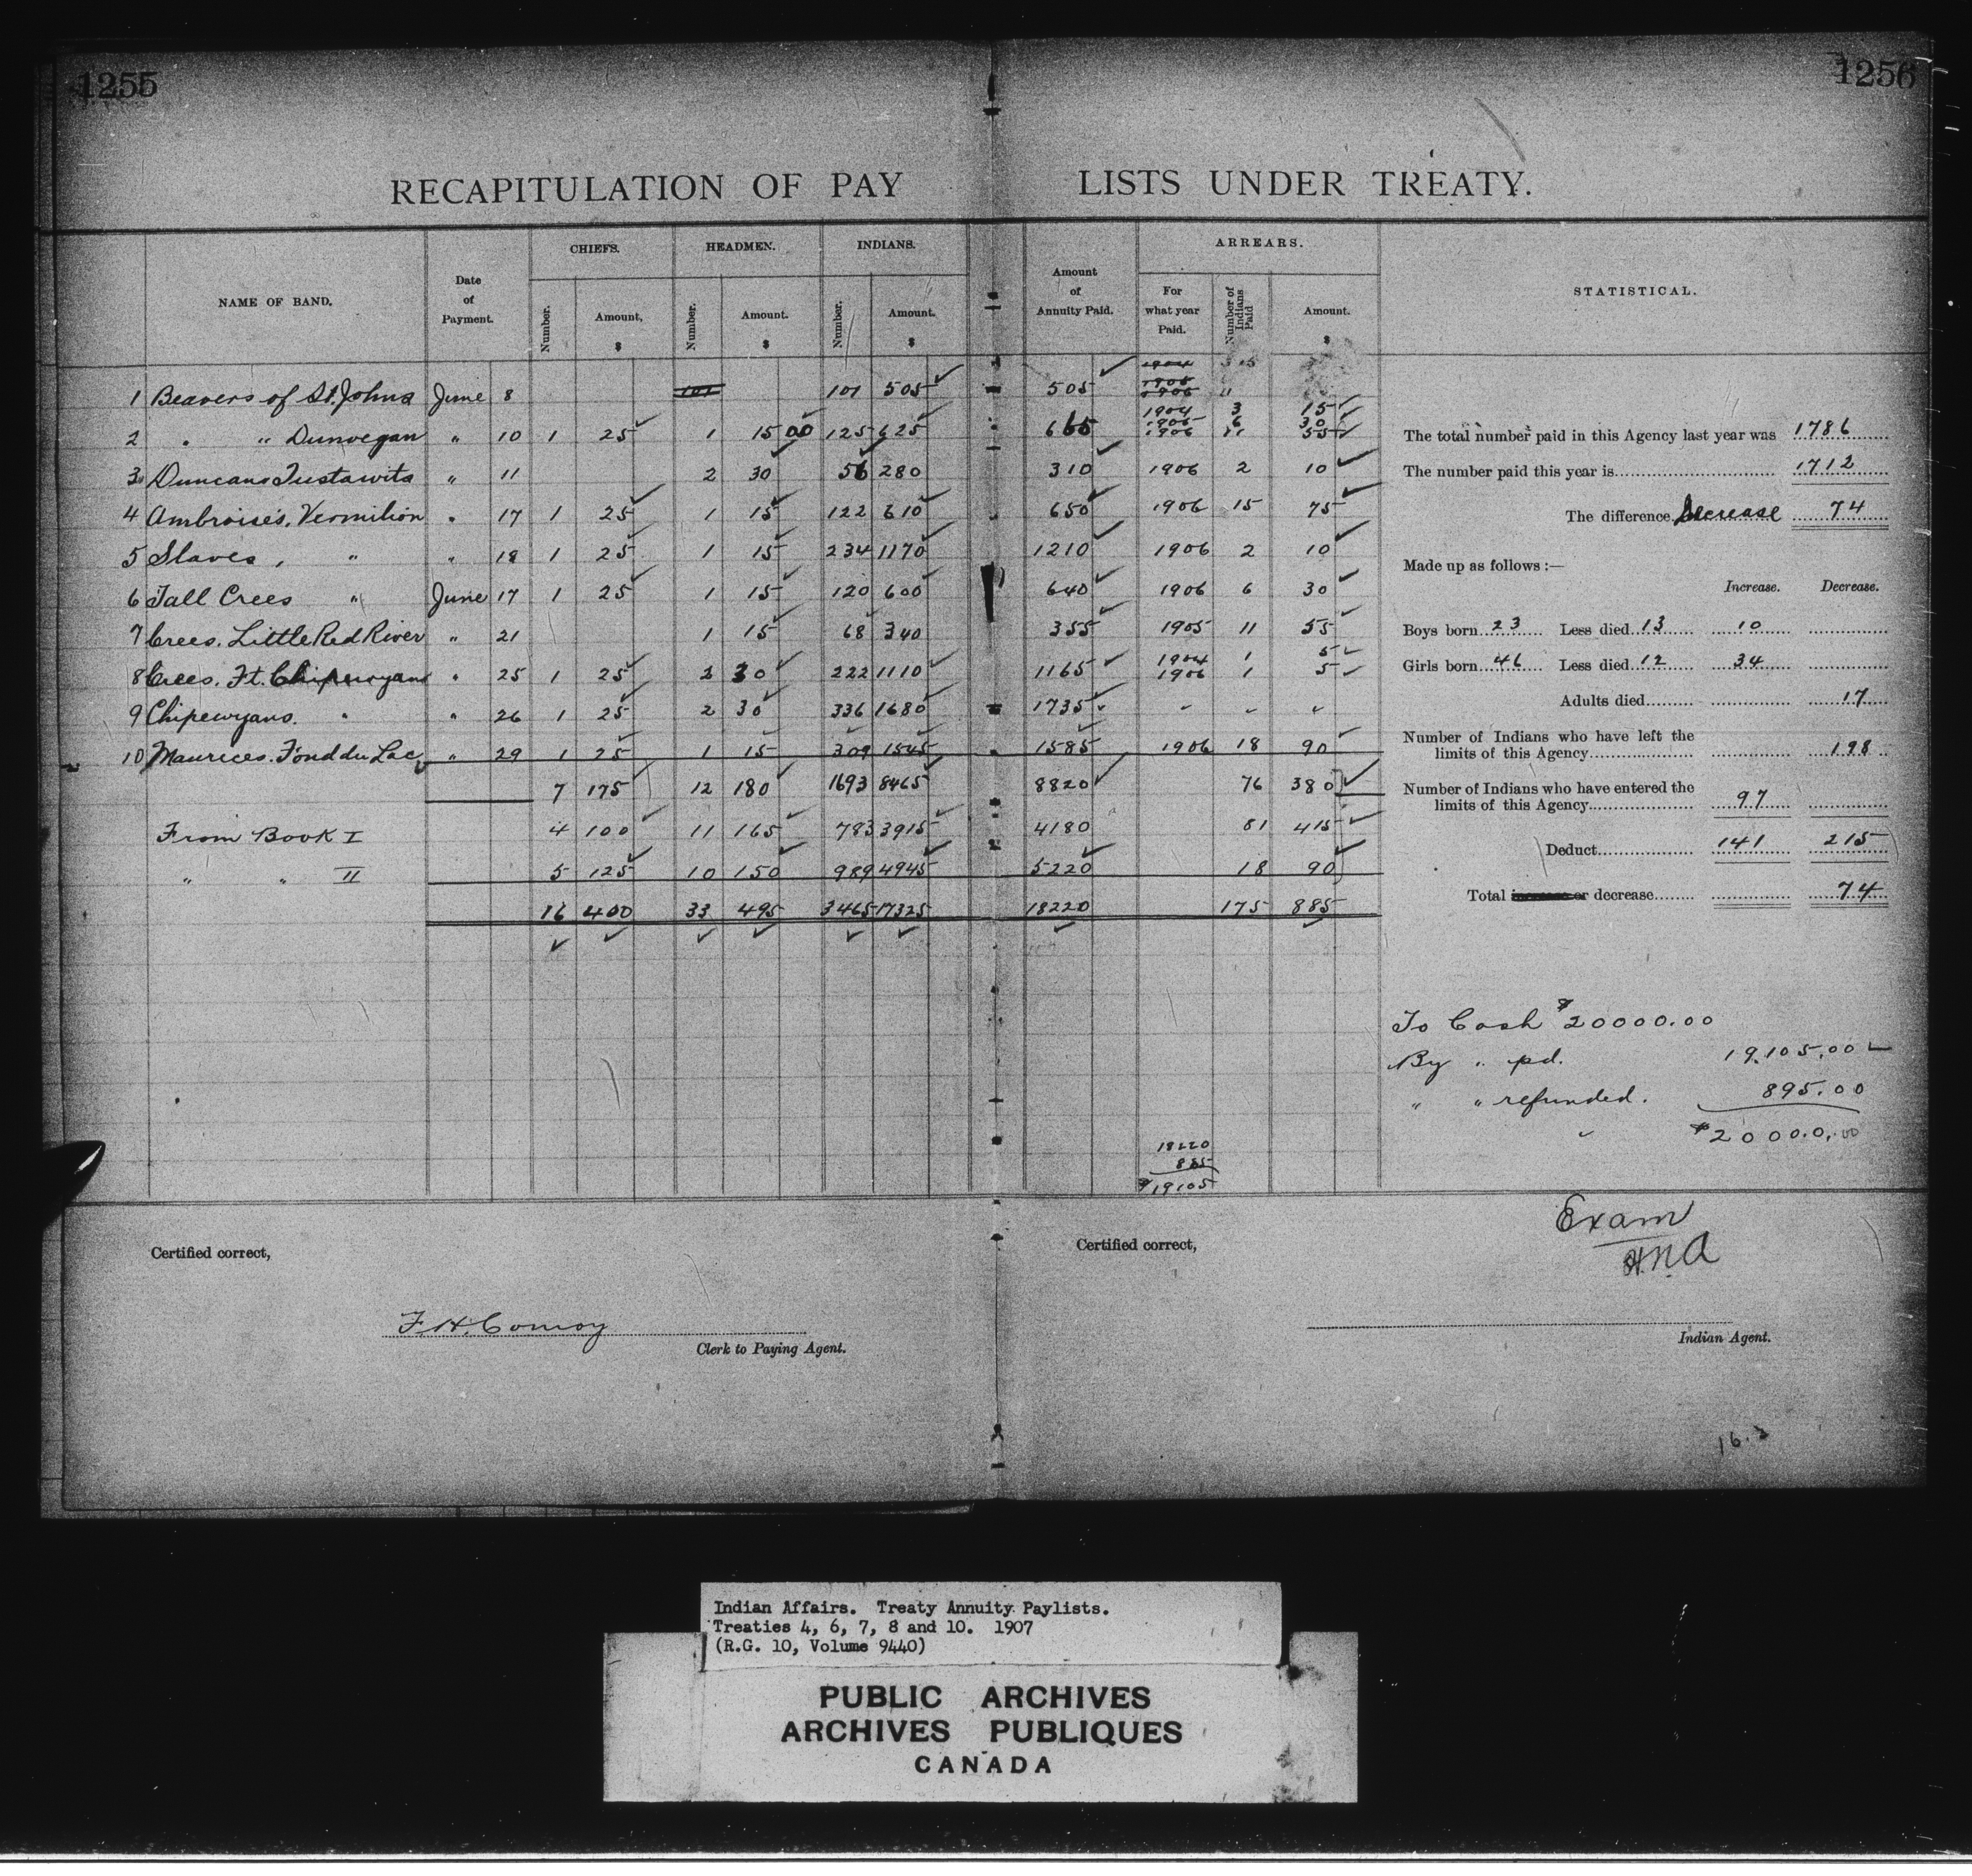 1255 1256
RECAPITULATION OF PAY LISTS UNDER TREATY.
NAME OF BAND. Date of Payment. CHIEFS. HEADMEN. INDIANS. Amount of Annuity Paid. ARREARS. STATISTICAL.
Number. Amount, $ Number. Amount. $ Number. Amount. $ For what year Paid. Number of Indians Paid Amount. $
1904
1905
1 Beavers of St. Johns June 8 101 101 505 505 1906 11
1904 3 15
1905 6 30
2 " " Dunvegan " 10 1 25 1 15 00 125 625 665 1906 11 55
3 Duncans Tustawits " 11 2 30 56 280 310 1906 2 10
4 Ambroise's, Vermilion " 17 1 25 1 15 122 610 650 1906 15 75
5 Slaves, " " 18 1 25 1 15 234 1170 1210 1906 2 10
6 Tall Crees " June 17 1 25 1 15 120 600 640 1906 6 30
7 Crees. Little Red River " 21 1 15 68 340 355 1905 11 55
1904 1 5
8 Crees. Ft. Chipewyans " 25 1 25 2 30 222 1110 1165 1906 1 5
9 Chipewyans. " " 26 1 25 2 30 336 1680 1735 " " "
10 Maurices. Fond du Lac " 29 1 25 1 15 309 1545 1585 1906 18 90
7 175 12 180 1693 8465 8820 76 380
From Book I 4 100 11 165 783 3915 4180 81 415
" " II 5 125 10 150 989 4945 5220 18 90
16 400 33 495 3465 17325 18220 175 885
The total number paid in this Agency last year was 1786
The number paid this year is 1712
The difference Decrease 74
Made up as follows :—
Increase. Decrease.
Boys born 23 Less died 13 10
Girls born 46 Less died 12 34
Adults died 17
Number of Indians who have left the
limits of this Agency 198
Number of Indians who have entered the
limits of this Agency 97
Deduct 141 215
Total increase or decrease 74
To Cash $20000.00
By " pd. 19.105.00
" " refunded. 895.00
$20000.00
18220
885
$19105
Exam
H.N.A
Certified correct, Certified correct,
F. H. Conroy
Clerk to Paying Agent. Indian Agent.
16.3
Indian Affairs. Treaty Annuity Paylists.
Treaties 4, 6, 7, 8 and 10. 1907
(R.G. 10, Volume 9440)
PUBLIC ARCHIVES
ARCHIVES PUBLIQUES
CANADA